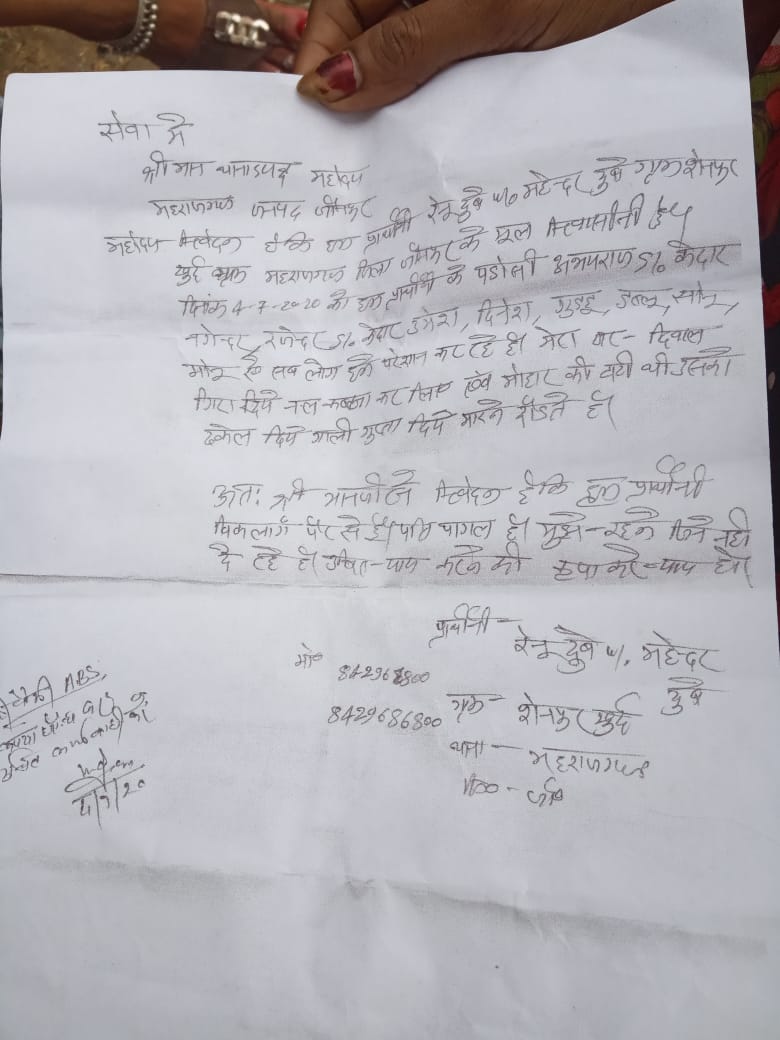 सेवा मे
श्रीमान थानाध्यक्ष महोदय
महराजगंज जनपद जौनपुर
महोदय निवेदन है कि हम प्रार्थीनी रेनू दुबे w/o महेन्दर दुबे ग्राम शेनपुर
खुर्द थाना महराजगंज जिला जौनपुर के मूल निवासीनी है।
दिनांक 4-7-2020 को हम प्रार्थीनी के पडोसी अभयराज S/o केदार
नगेन्दर, राजेन्दर S/o केदार उमेश, दिनेश, गुड्डू, डब्लू, सोनू,
मोनू ये सब लोग हमे परेशान कर रहे है। मेरा घर - दिवाल
गिरा दिये नल कब्जा कर लिए एवं मोहार की टाटी थी उसको
ढकेल दिये गाली गुप्ता दिये मारने दौडते है।
अतः श्री मानजी से निवेदन है कि हम प्रार्थीनी
विकलांग पैर से है। पति पागल है। मुझे - रहने जिने नही
दे रहे है। उचित - न्याय करने की कृपा करे - न्याय हो।
प्रार्थीनी -
रेनू दुबे w/o महेन्दर
दुबे
मो०
8429686800
ग्राम - शेनपुर खुर्द
थाना - महराजगंज
जि० - जौ०
4/7/20